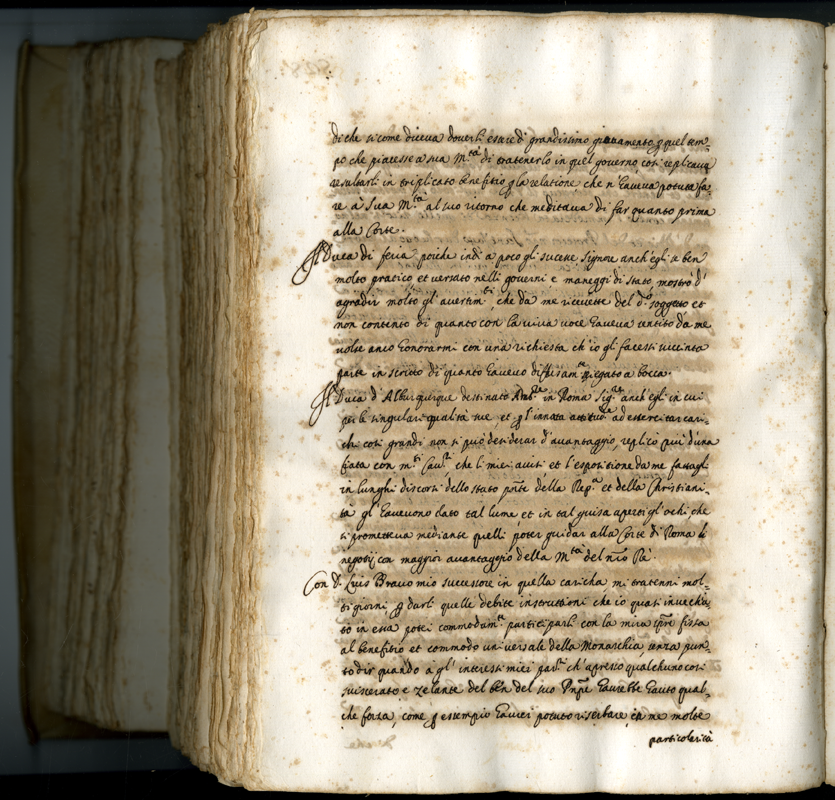 di che si come diceva doverli essere di grandissimo giovamento p quel tem-
po che piacesse a sua M.tà di tratenerlo in quel governo, così replicava
resultarli in triplicato benefitio p la relatione, che n'haveva potuta fa-
re à Sua M.tà al suo ritorno che meditava di far quanto prima
alla Corte.
Il Duca di feria poiche indi a poco gli sucesse signore anch'egli se ben
molto pratico et versato nelli governi e maneggi di stato, mostrò d'
agradir molto gl'avertim.ti, che da me ricevette del d.o soggetto et
non contento di quanto con la viva voce haveva sentito da me
volse anco honorarmi con una richiesta ch'io gli facessi succinta
parte in scritto di quanto havevo diffusam.te spiegato a bocca.
Il Duca d'Alburquerque destinato Amb.re in Roma Sig.re anch'egli in cui
per le singulari qualità sue, et p l'innata attitud.ne ad essercitar cari-
chi così grandi non si può desiderar d'avantaggio, replicò più d'una
fiata con m.ti Cav.ri, che l'miei avisi et l'espositione da me fattagli
in lunghi discorsi dello stato pnte della Rep.ca et della Christiani-
tà gl'havevono dato tal lume, et in tal guisa aperti gl'ochi, che
si prometteva mediante quelli poter guidar alla Corte di Roma li
negotij con maggior avantaggio della M.tà del nro Rè.
Con D. Luis Bravo mio successore in quella caricha, mi tratenni mol-
ti giorni, p darli quelle debite instruttioni che io quasi invechia-
to in essa potei commodam.te participarli con la mira spre fissa
al benefitio et commodo universale della Monarchia senza pun-
to dir quando a gl'interessi miei par.ri ch'apresso qualchuno così
sviscerato e zelante del ben del suo Pnpe havrebbe havuto qual-
che forza, come p essempio havrei potuto riserbare in me molte
particolarità